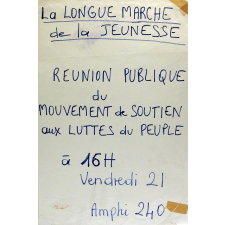 La LONGUE MARCHE
de la JEUNESSE
REUNION PUBLIQUE
du
MOUVEMENT de SOUTIEN
aux LUTTES du PEUPLE
à 16H
Vendredi 21
Amphi 240